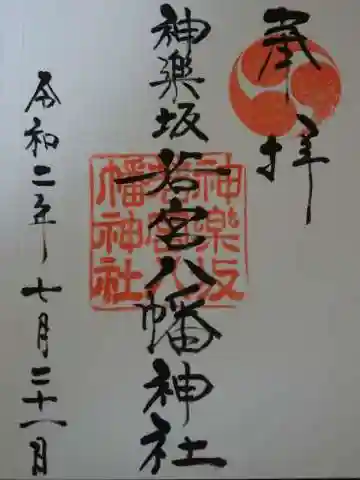 奉拝
神樂坂若宮八幡神社
神樂坂
若宮八
幡神社
令和二年七月二十八日